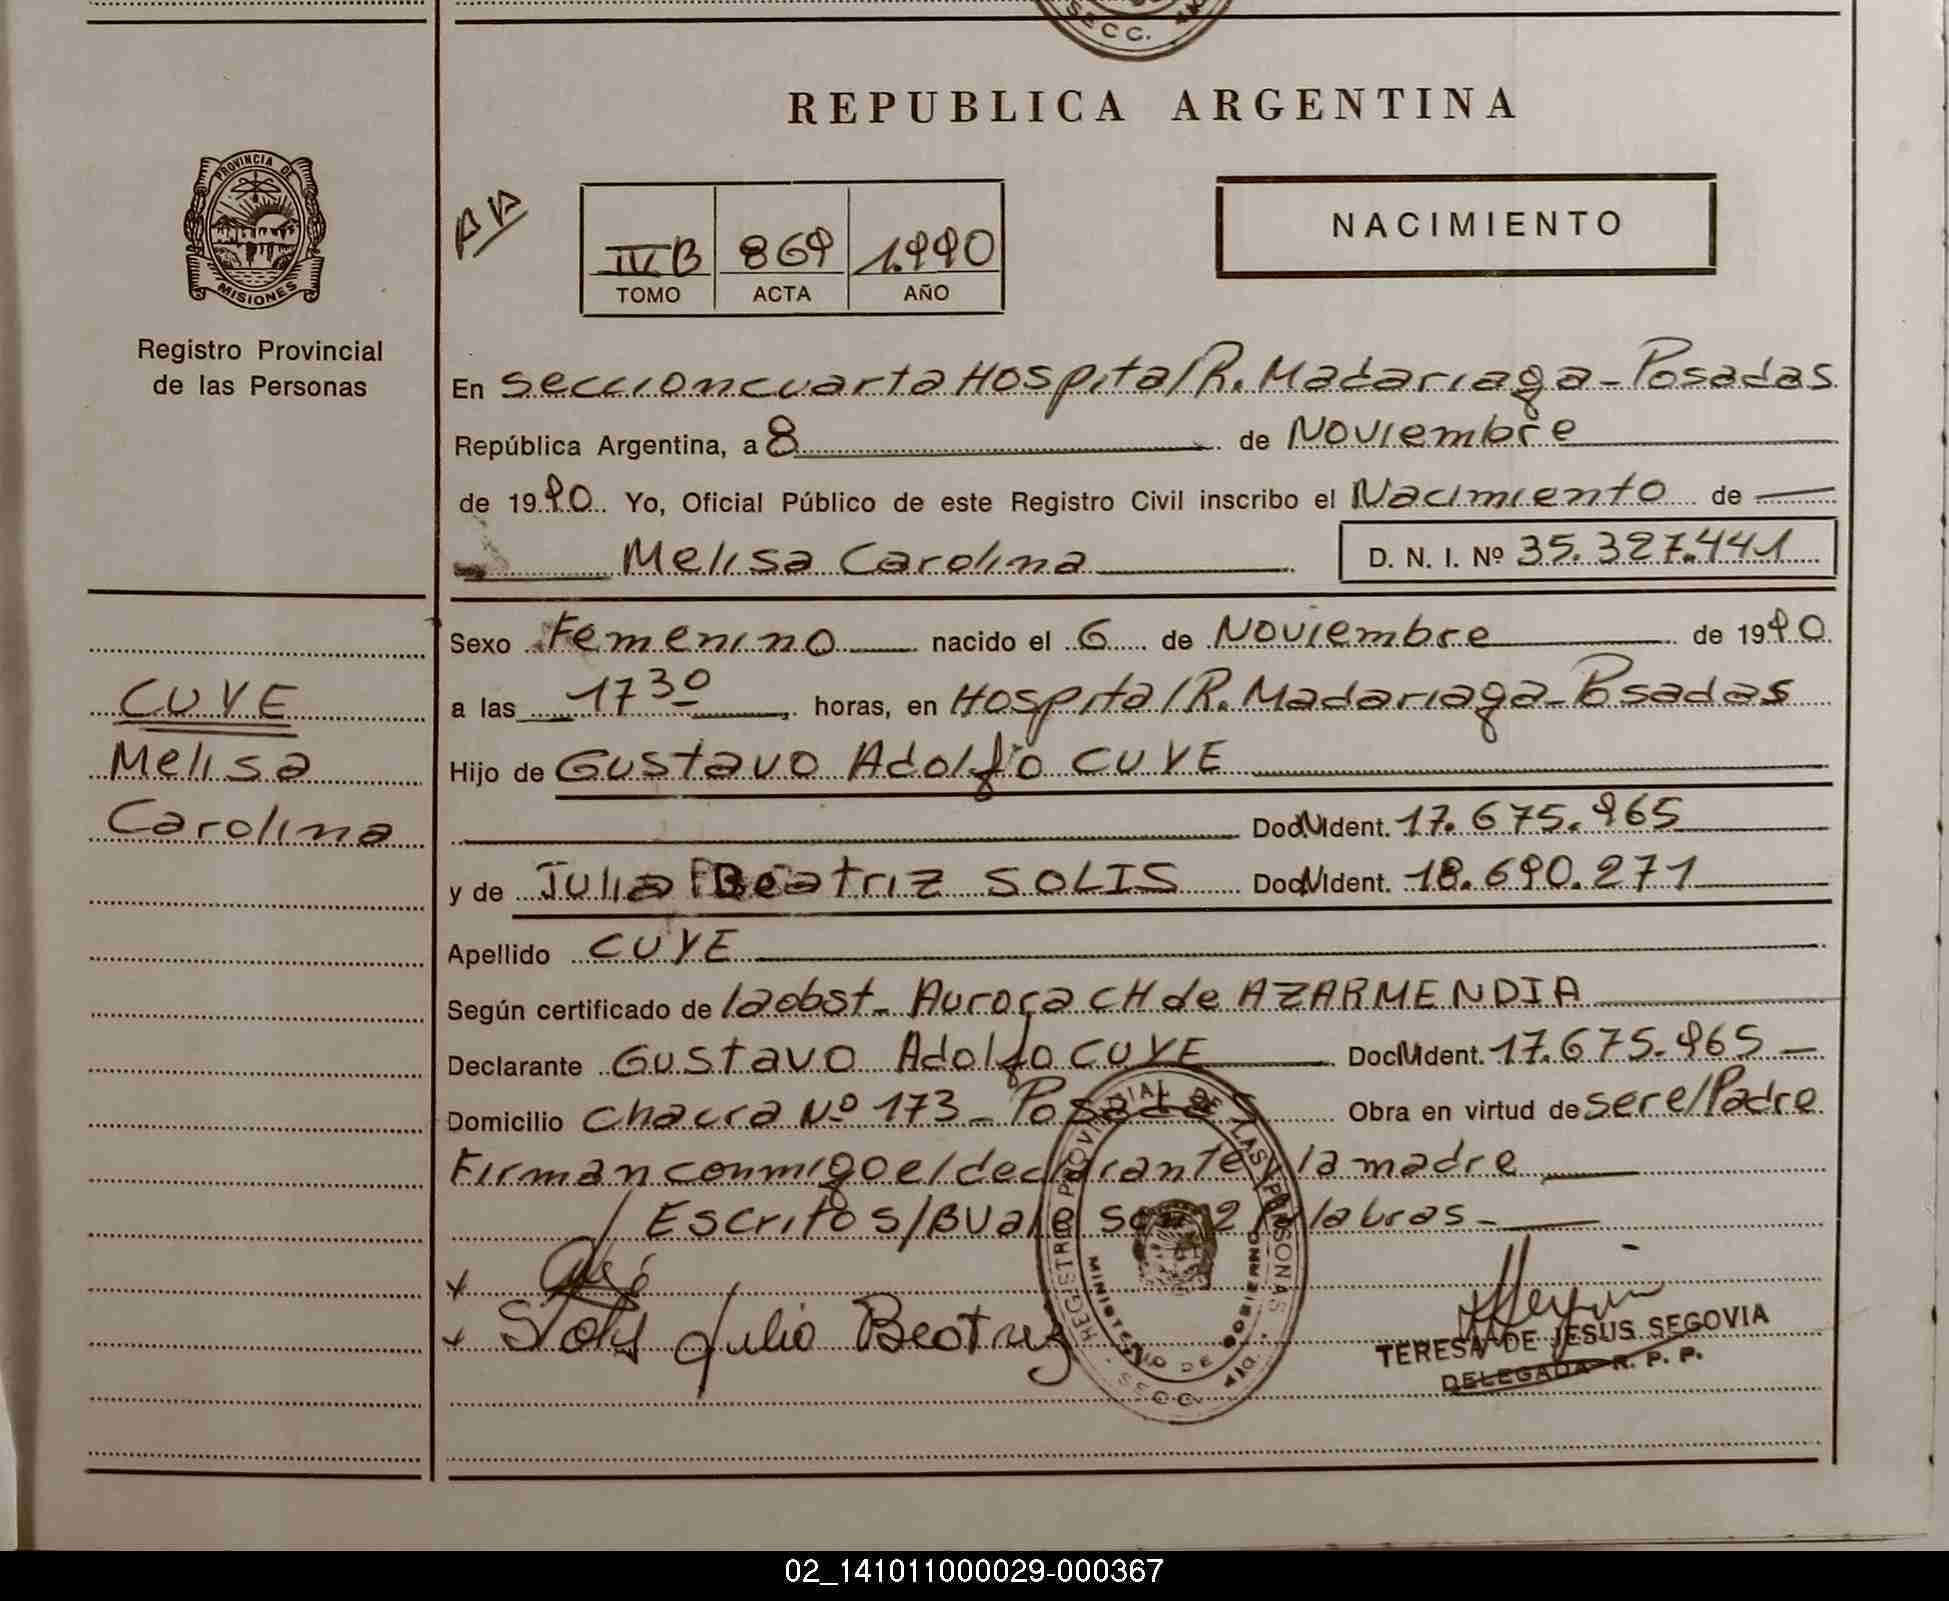 SECC.
REPUBLICA ARGENTINA
PROVINCIA DE
MISIONES
Registro Provincial
de las Personas
IV.B 869 1.990
TOMO ACTA AÑO
NACIMIENTO
En seccion cuarta Hospital R. Madariaga - Posadas
República Argentina, a 8 de Noviembre
de 1990 Yo, Oficial Público de este Registro Civil inscribo el Nacimiento de
Melisa Carolina D. N. I. Nº 35.327.441
Sexo Femenino nacido el 6 de Noviembre de 1990
a las 17 30 horas, en Hospital R. Madariaga - Posadas
CUYE
Melisa
Carolina
Hijo de Gustavo Adolfo CUYE
Doc.N.Ident. 17.675.965
y de Julia Beatriz SOLIS Doc.N.Ident. 18.690.271
Apellido CUYE
Según certificado de la obst. Aurora CH de AZARMENDIA
Declarante Gustavo Adolfo CUYE Doc.N.Ident. 17.675.965
Domicilio chacra Nº 173 - Posadas Obra en virtud de ser el Padre
Firman conmigo el declarante y la madre
Escrito s/B vale son 2 Palabras -
Solis Julia Beatriz
REGISTRO PROVINCIAL DE LAS PERSONAS
MINISTERIO DE GOBIERNO
SECC. 4ta
TERESA DE JESUS SEGOVIA
DELEGADA R. P. P.
02_141011000029-000367